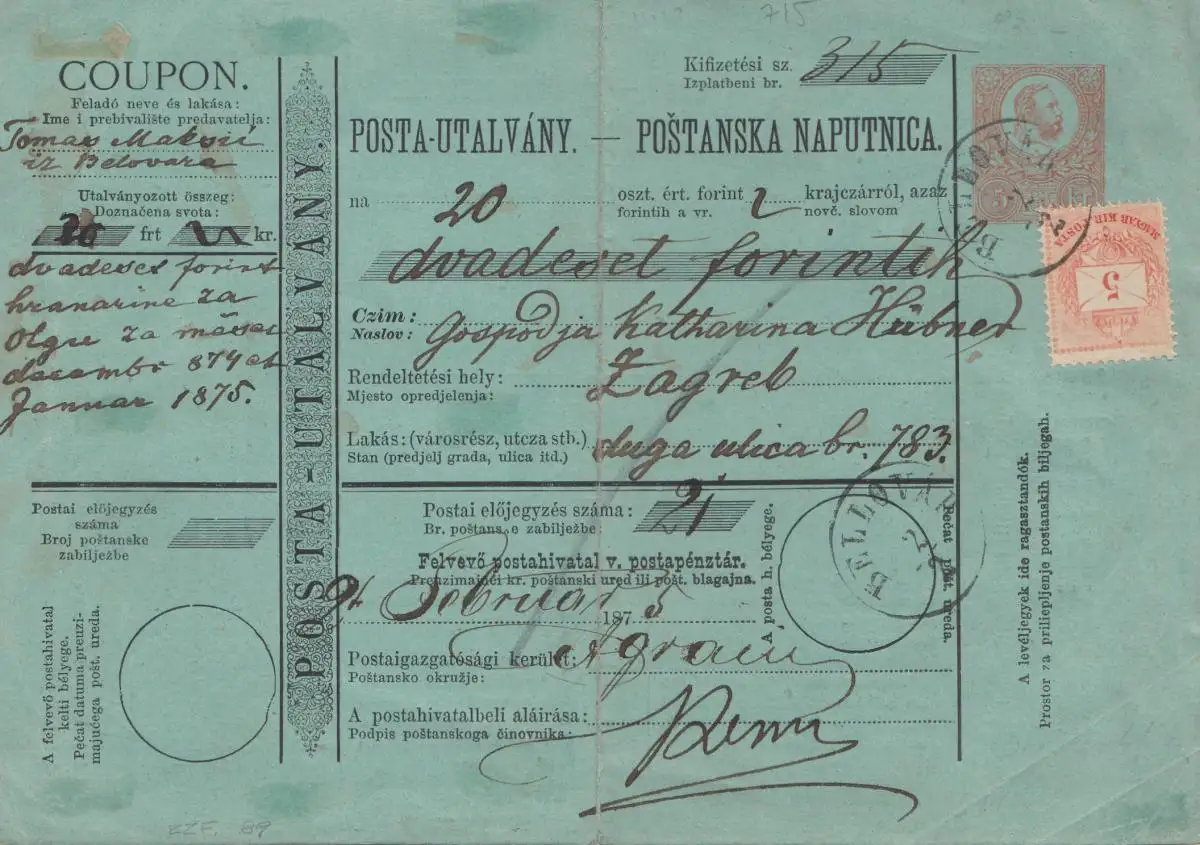 715
COUPON.
Feladó neve és lakása:
Ime i prebivalište predavatelja:
Tomas Maksić
iz Belovara
Utalványozott összeg:
Doznačena svota:
20 frt 2 kr.
dvadeset forint
hranarine za
Olgu za mesec
decembr 874 et
Januar 1875.
Postai előjegyzés
száma
Broj poštanske
zabilježbe
A felvevő postahivatal
kelti bélyege.
Pečat datuma preuzi-
majućega pošt. ureda.
POSTA-UTALVÁNY.
Kifizetési sz.
Izplatbeni br. 315
POSTA-UTALVÁNY. — POŠTANSKA NAPUTNICA.
na 20 oszt. ért. forint 2 krajczárról, azaz
forintih a vr. novč. slovom
dvadeset forintih
Czim:
Naslov: Gospodja Katharina Hübner
Rendeltetési hely: Zagreb
Mjesto opredjelenja:
Lakás: (városrész, utcza stb.) duga ulica br. 783.
Stan (predjelj grada, ulica itd.)
Postai előjegyzés száma: 21
Br. poštans.e zabilježbe:
Felvevő postahivatal v. postapénztár.
Preuzimajući kr. poštanski ured ili pošt. blagajna.
9/2 Februar 1875
Postaigazgatósági kerület: Agram
Poštansko okružje:
A postahivatalbeli aláirása:
Podpis poštanskoga činovnika:
A posta h. bélyege.
Pečat pošt. ureda.
BELLOVÁR
BELLOVÁR
5
MAGYAR KIR. POSTA
5
A levéljegyek ide ragasztandók.
Prostor za priliepljenje postanskih biljegah.
ZZF. 89